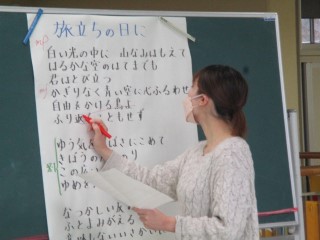 旅立ちの日に
mp
白い光の中に 山なみはもえて
はるかな空のはてまでも
君はとび立つ
mp
かぎりなく青い空に心ふるわせ
自由をかける鳥よ
ふり
こともせず
ゆう気を
ばさにこめて
きぼうの
り
この広い
ゆめを
なつかしい友の
ふとよみがえる
意味もないいさかいに